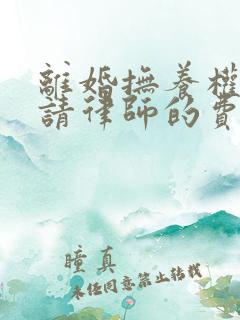 離婚撫養權
請律師的費
瞳真
未任同意禁止转载